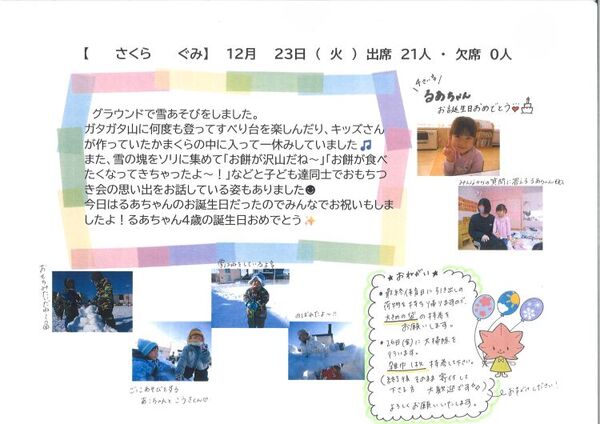 【 さくら ぐみ】 12月 23日 ( 火 ) 出席 21人 ・ 欠席 0人
グラウンドで雪あそびをしました。
ガタガタ山に何度も登ってすべり台を楽しんだり、キッズさん
が作っていたかまくらの中に入って一休みしていました🎵
また、雪の塊をソリに集めて「お餅が沢山だね～」「お餅が食べ
たくなってきちゃったよ～！」などと子ども達同士でおもちつ
き会の思い出をお話している姿もありました☻
今日はるあちゃんのお誕生日だったのでみんなでお祝いもしま
したよ！るあちゃん4歳の誕生日おめでとう✨
るあちゃん
お誕生日おめでとう
みんなからの質問に答えるるあちゃん
おもちみたいだね～
のぼるよ～!!
ごっこあそびをする
あこちゃんとこうきくん
★おねがい★
・最終保育日に引き出しの
荷物を持ち帰りますので、
大きめの袋の持参を
お願いします。
・26日(金)に大掃除を
行います。
雑巾1枚持参して下さい。
(終了後そのまま寄付して
下さる方 大歓迎です)
よろしくお願いいたします。
おねがいします!